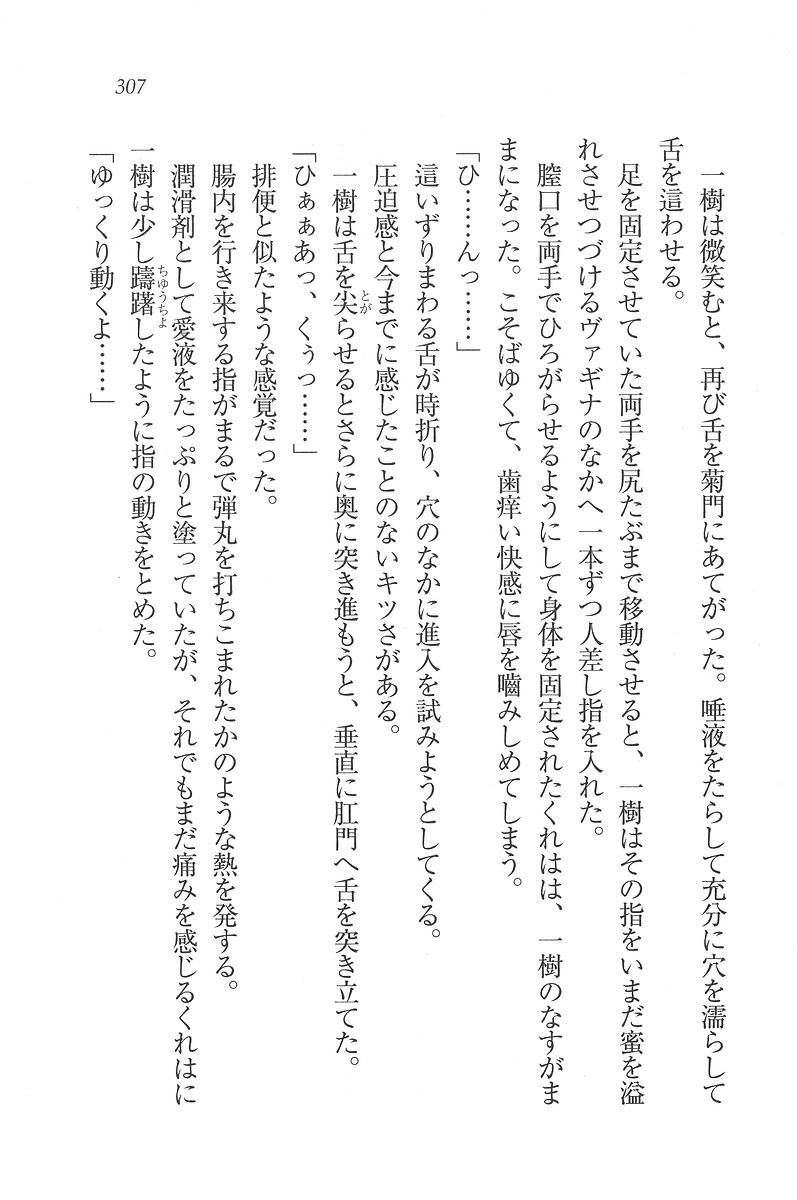 307
一樹は微笑むと、再び舌を菊門にあてがった。唾液をたらして充分に穴を濡らして
舌を這わせる。
足を固定させていた両手を尻たぶまで移動させると、一樹はその指をいまだ蜜を溢
れさせつづけるヴァギナのなかへ一本ずつ人差し指を入れた。
膣口を両手でひろがらせるようにして身体を固定されたくれはは、一樹のなすがま
まになった。こそばゆくて、歯痒い快感に唇を嚙みしめてしまう。
「ひ……んっ……」
這いずりまわる舌が時折り、穴のなかに進入を試みようとしてくる。
圧迫感と今までに感じたことのないキツさがある。
一樹は舌を尖らせるとさらに奥に突き進もうと、垂直に肛門へ舌を突き立てた。
とが
「ひぁぁあっ、くぅっ……」
排便と似たような感覚だった。
腸内を行き来する指がまるで弾丸を打ちこまれたかのような熱を発する。
潤滑剤として愛液をたっぷりと塗っていたが、それでもまだ痛みを感じるくれはに
一樹は少し躊躇したように指の動きをとめた。
ちゆうちよ
「ゆっくり動くよ……」